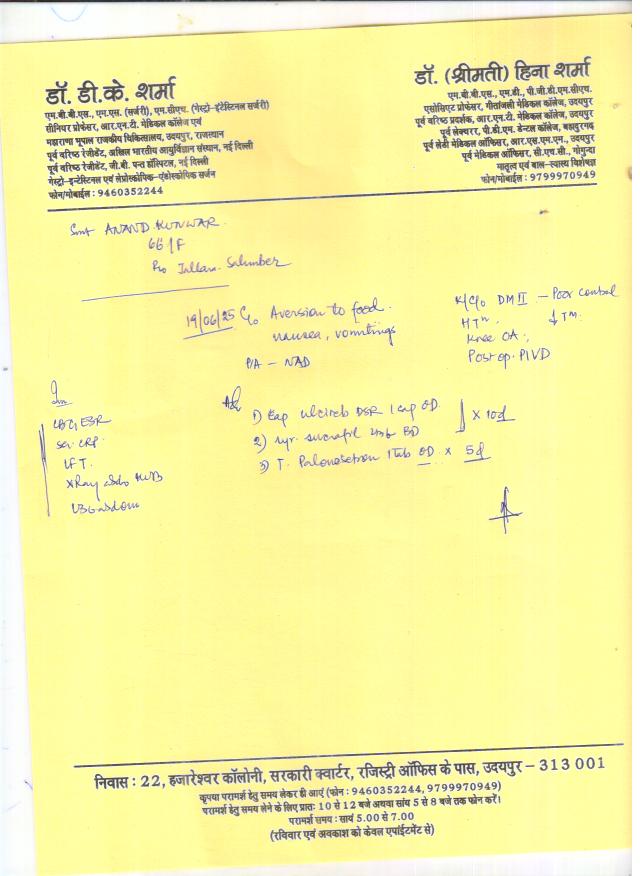 डॉ. डी.के. शर्मा
एम.बी.बी.एस., एम.एस. (सर्जरी), एम.सीएच. (गेस्ट्रो-इंटेस्टिनल सर्जरी)
सीनियर प्रोफेसर, आर.एन.टी. मेडिकल कॉलेज एवं
महाराणा भूपाल राजकीय चिकित्सालय, उदयपुर, राजस्थान
पूर्व वरिष्ठ रेजीडेंट, अखिल भारतीय आयुर्विज्ञान संस्थान, नई दिल्ली
पूर्व वरिष्ठ रेजीडेंट, जी.बी. पन्त हॉस्पिटल, नई दिल्ली
गेस्ट्रो-इन्टेस्टिनल एवं लेप्रोस्कोपिक-एंडोस्कोपिक सर्जन
फोन/मोबाईल : 9460352244
डॉ. (श्रीमती) हिना शर्मा
एम.बी.बी.एस., एम.डी., पी.जी.डी.एम.सीएच.
एसोसिएट प्रोफेसर, गीतांजली मेडिकल कॉलेज, उदयपुर
पूर्व प्रदर्शक, आर.एन.टी. मेडिकल कॉलेज, उदयपुर
पूर्व लेक्चरर, पी.डी.एम. डेन्टल कॉलेज, बहादुरगढ़
पूर्व लेडी मेडिकल ऑफिसर, आर.एस.एम.एन., उदयपुर
पूर्व मेडिकल ऑफिसर, सी.एच.सी., गोगुन्दा
मातृत्व एवं बाल-स्वास्थ्य विशेषज्ञ
फोन/मोबाईल : 9799970949
Smt ANAND KUNWAR
66/F
R/o Jallara. Salumber
19/06/25 C/o Aversion to food.
nausea, vomitings
P/A - NAD
K/C/o DM II - Poor control
HTn. ↓ Tm.
Knee OA.
Post op. PIVD
Inv
CBC, ESR
Ser. CRP.
LFT.
X Ray Abdo KUB
USG abdom
Adv
1) Cap Ulcireb DSR 1 cap OD.
2) Syr. Sucrafil BD
x 10d
3) T. Palonosetron 1 tab OD x 5d
निवास : 22, हजारेश्वर कॉलोनी, सरकारी क्वार्टर, रजिस्ट्री ऑफिस के पास, उदयपुर - 313 001
कृपया परामर्श हेतु समय लेकर ही आएं (फोन : 9460352244, 9799970949)
परामर्श हेतु समय लेने के लिए प्रातः 10 से 12 बजे अथवा सांय 5 से 8 बजे तक फोन करें।
परामर्श समय : सायं 5.00 से 7.00
(रविवार एवं अवकाश को केवल एपाईंटमेंट से)